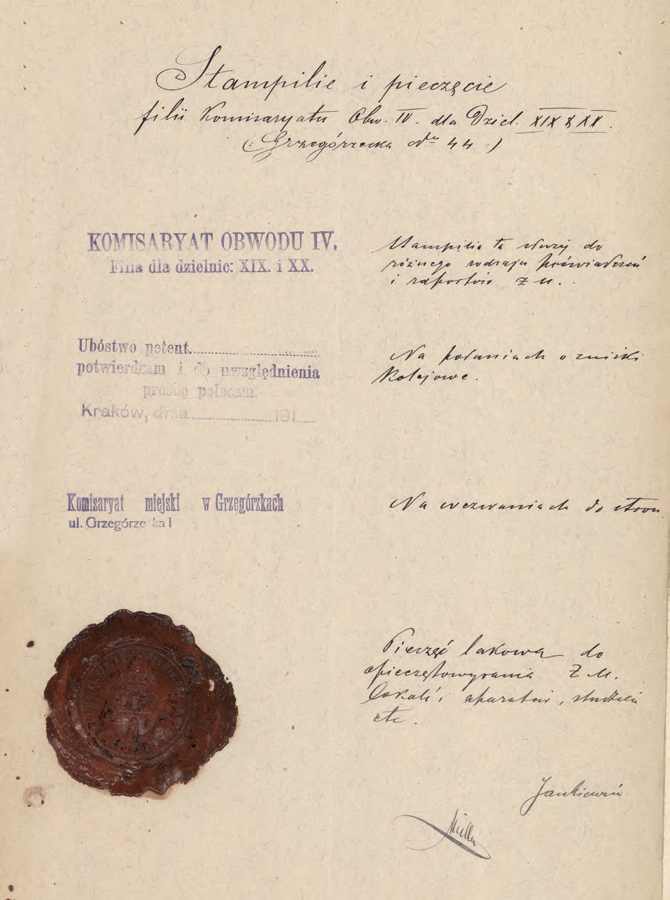 Stampilie i pieczęcie
filii Komisaryatu Obw. IV. dla Dziel. XIX & XX.
(: Grzegórzecka No 44 :)
KOMISARYAT OBWODU IV.
Filia dla dzielnic: XIX. i XX.
Stampilia ta służy do
różnego rodzaju poświadczeń
i raportów z u.
Ubóstwo petent
potwierdzam i do uwzględnienia
proszę polecam
Kraków, dnia 191
Na podaniach o zniżki
kolejowe.
Komisaryat miejski w Grzegórzkach
ul. Grzegórze ka l
Na wezwaniach do stron
Pieczęć lakowa do
opieczętowywania z u.
lokali, aparatów, studzien
etc.